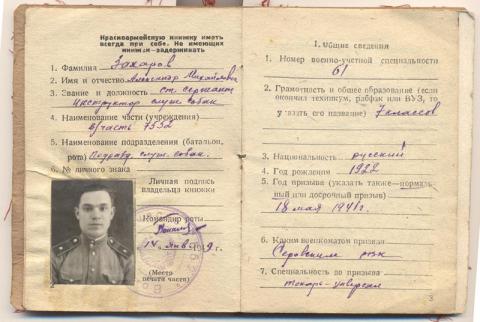 Красноармейскую книжку иметь
всегда при себе. Не имеющих
книжки—задерживать
1. Фамилия Захаров
2. Имя и отчество Александр Михайлович
3. Звание и должность ст. сержант
Инструктор служ собак
4. Наименование части (учреждения)
в/часть 7552
5. Наименование подразделения (батальон,
рота) служ. собак.
6. № личного знака
Личная подпись
владельца книжки
Командир роты
(Место
печати части)
I. Общие сведения
1. Номер военно-учетной специальности
61
2. Грамотность и общее образование (если
окончил техникум, рабфак или ВУЗ, то
указать его название) 7 классов
3. Национальность русский
4. Год рождения 1922
5. Год призыва (указать также—нормаль-
ный или досрочный призыв)
18 мая 1941г.
6. Каким военкоматом призван
Серовским рвк
7. Специальность до призыва
токарь-универсал
3